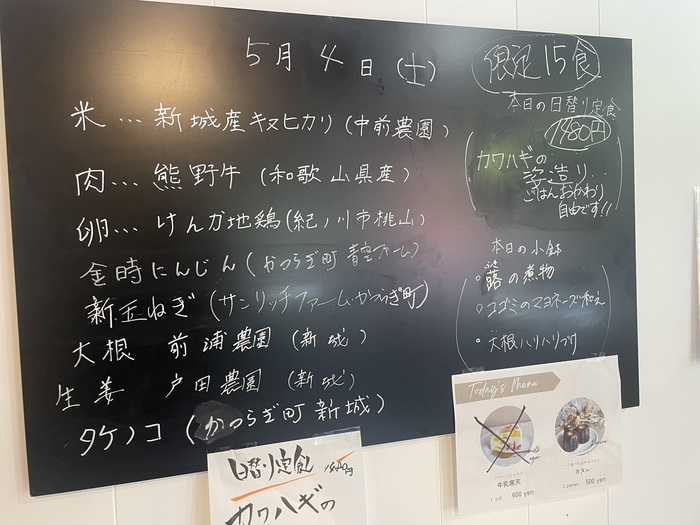 5月4日(土)
限定15食
米…新城産キヌヒカリ(中前農園)
肉…熊野牛(和歌山県産)
卵…けんか地鶏(紀ノ川市桃山)
金時にんじん(かつらぎ町 青空ファーム)
新玉ねぎ(サンリッチファーム・かつらぎ町)
大根 前浦農園(新城)
生姜 戸田農園(新城)
タケノコ(かつらぎ町新城)
本日の日替り定食
1980円
カワハギの
姿造り…
ごはんおかわり
自由です!!
本日の小鉢
・蕗の煮物
・コゴミのマヨネーズ和え
・大根ハリハリづけ
Today's Menu
牛乳寒天
600 yen
カヌレ
2 pieces 500 yen
日替り定食
カワハギの